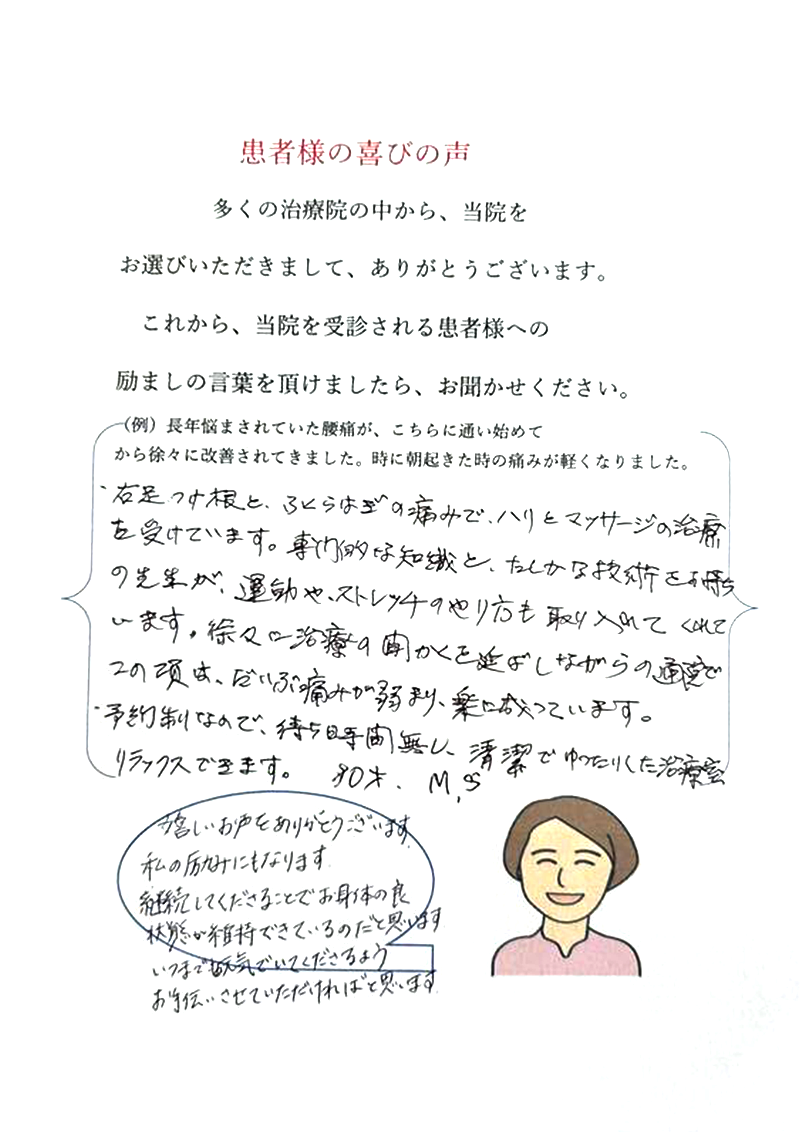 患者様の喜びの声
多くの治療院の中から、当院を
お選びいただきまして、ありがとうございます。
これから、当院を受診される患者様への
励ましの言葉を頂けましたら、お聞かせください。
（例）長年悩まされていた腰痛が、こちらに通い始めて
から徐々に改善されてきました。時に朝起きた時の痛みが軽くなりました。
・右足つけ根と、ふくらはぎの痛みで、ハリとマッサージの治療
を受けています。専門的な知識と、たしかな技術をお持ち
の先生が、運動や、ストレッチのやり方も取り入れてくれて
います。徐々に治療の間かくを延ばしながらの通院で
この頃は、だいぶ痛みが弱まり、楽に成っています。
・予約制なので、待ち時間無し、清潔でゆったりした治療室
リラックスできます。 80才. M.S
嬉しいお声をありがとうございます
私の励みにもなります
継続してくださることでお身体の良
状態が維持できているのだと思います
いつまでも元気でいてくださるよう
お手伝いさせていただければと思います